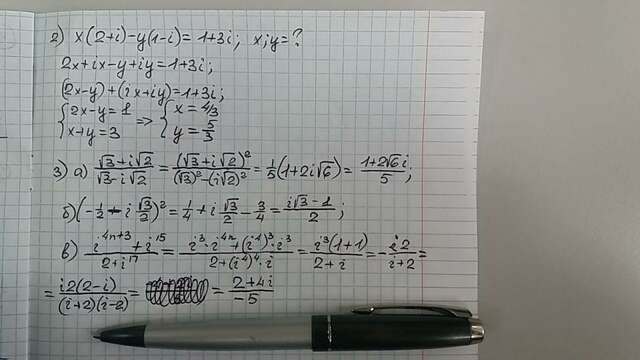 2) x(2+i)-y(1-i)=1+3i; x;y=?
2x+ix-y+iy=1+3i;
(2x-y)+(ix+iy)=1+3i;
{2x-y=1 {x=4/3
{x+y=3 => {y=5/3
3) а) (√3+i√2)/(√3-i√2)=(√3+i√2)²/((√3)²-(i√2)²)=1/5(1+2i√6)=(1+2√6i)/5;
б) (-1/2-i√3/2)²=1/4+i√3/2-3/4=(i√3-1)/2;
в) (i⁴ⁿ⁺³+i¹⁵)/(2+i¹⁷)=(i³·i⁴ⁿ+(i⁴)³·i³)/(2+(i⁴)⁴·i)=i³(1+1)/(2+i)=-i2/(i+2)=
=i2(2-i)/((i+2)(i-2))= =(2+4i)/-5